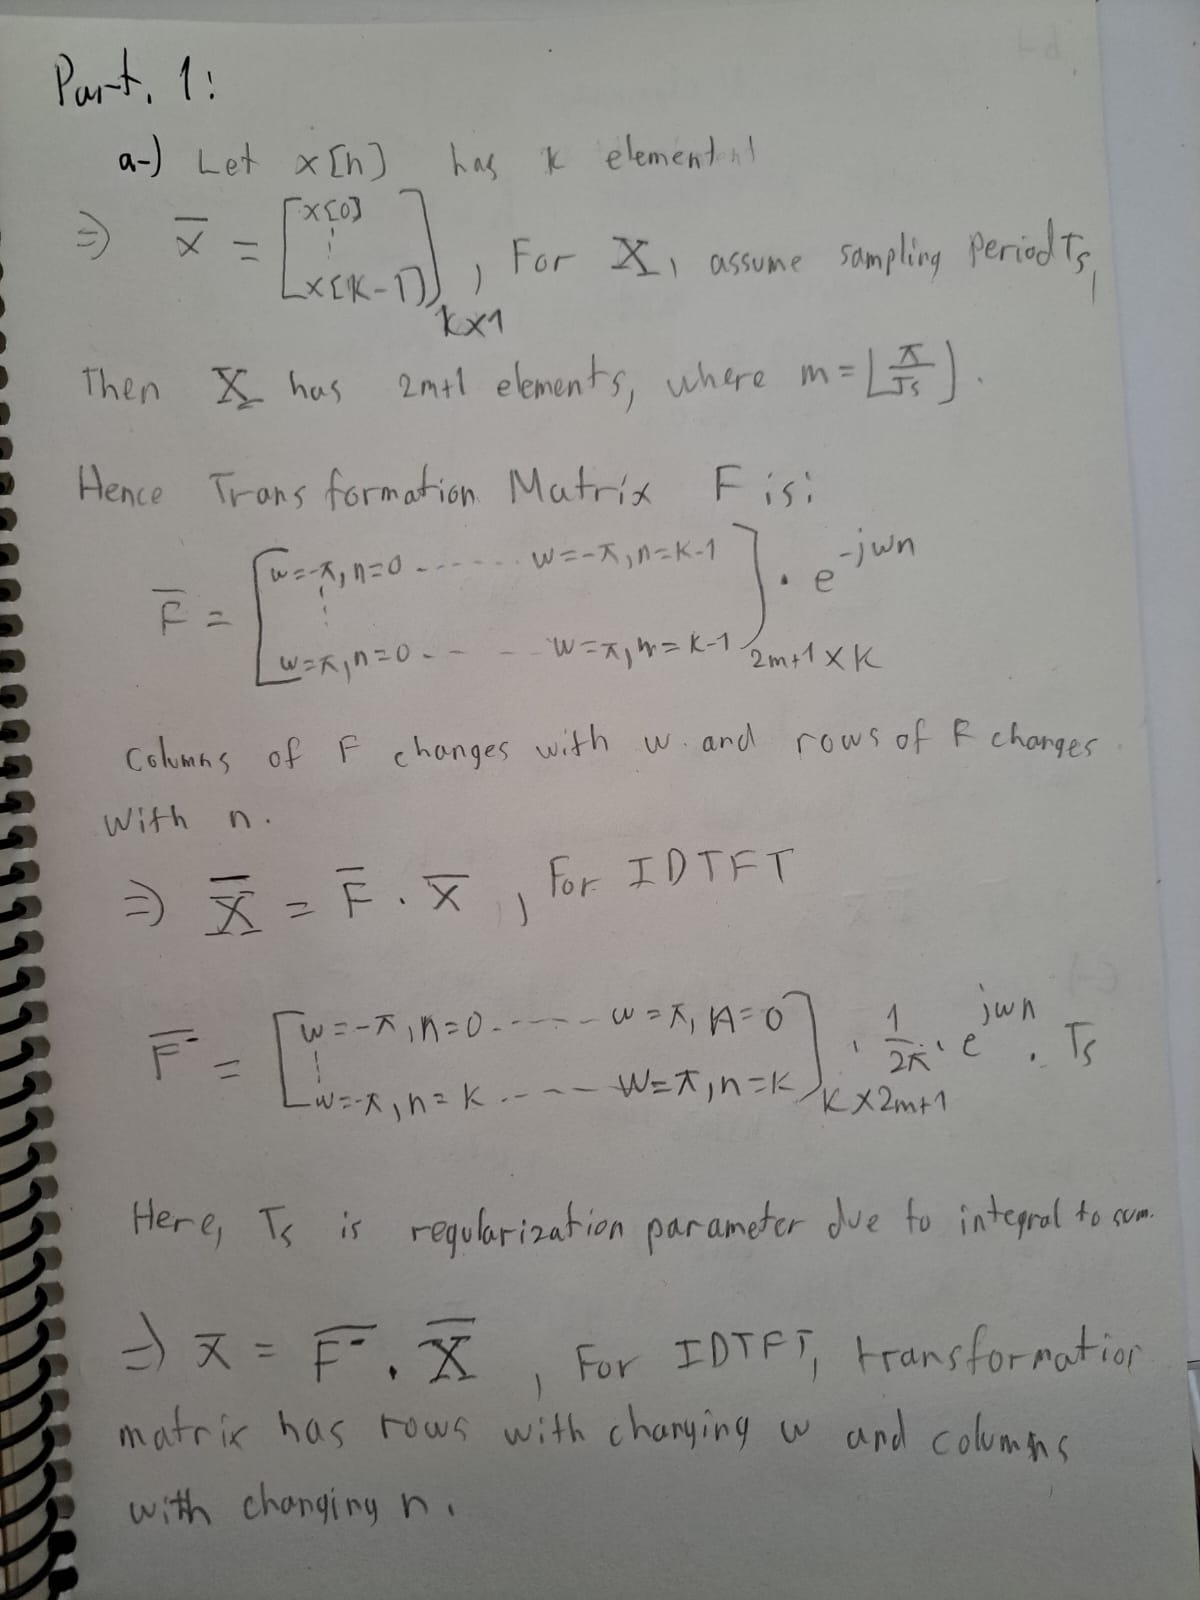 Part. 1:
a-) Let x[n] has k element
=> x̄ = [x[0] ⋮ x[K-1]] k×1 , For X, assume sampling period Ts,
Then X has 2m+1 elements, where m = ⌊π/Ts⌋.
Hence Transformation Matrix F is:
F̄ = [w=-π, n=0 ------ w=-π, n=K-1
⋮
w=π, n=0 -- -- w=π, n=K-1] 2m+1 × K . e^-jwn
Columns of F changes with w. and rows of F changes
with n.
=> X̄ = F̄ . x̄ , For IDTFT
F̄⁻ = [w=-π, n=0 ------ w=π, n=0
⋮
w=-π, n=k ----- w=π, n=k] K×2m+1 . 1/2π . e^jwn . Ts
Here, Ts is regularization parameter due to integral to sum.
=> x̄ = F̄⁻ . X̄ , For IDTFT, transformation
matrix has rows with changing w and columns
with changing n.